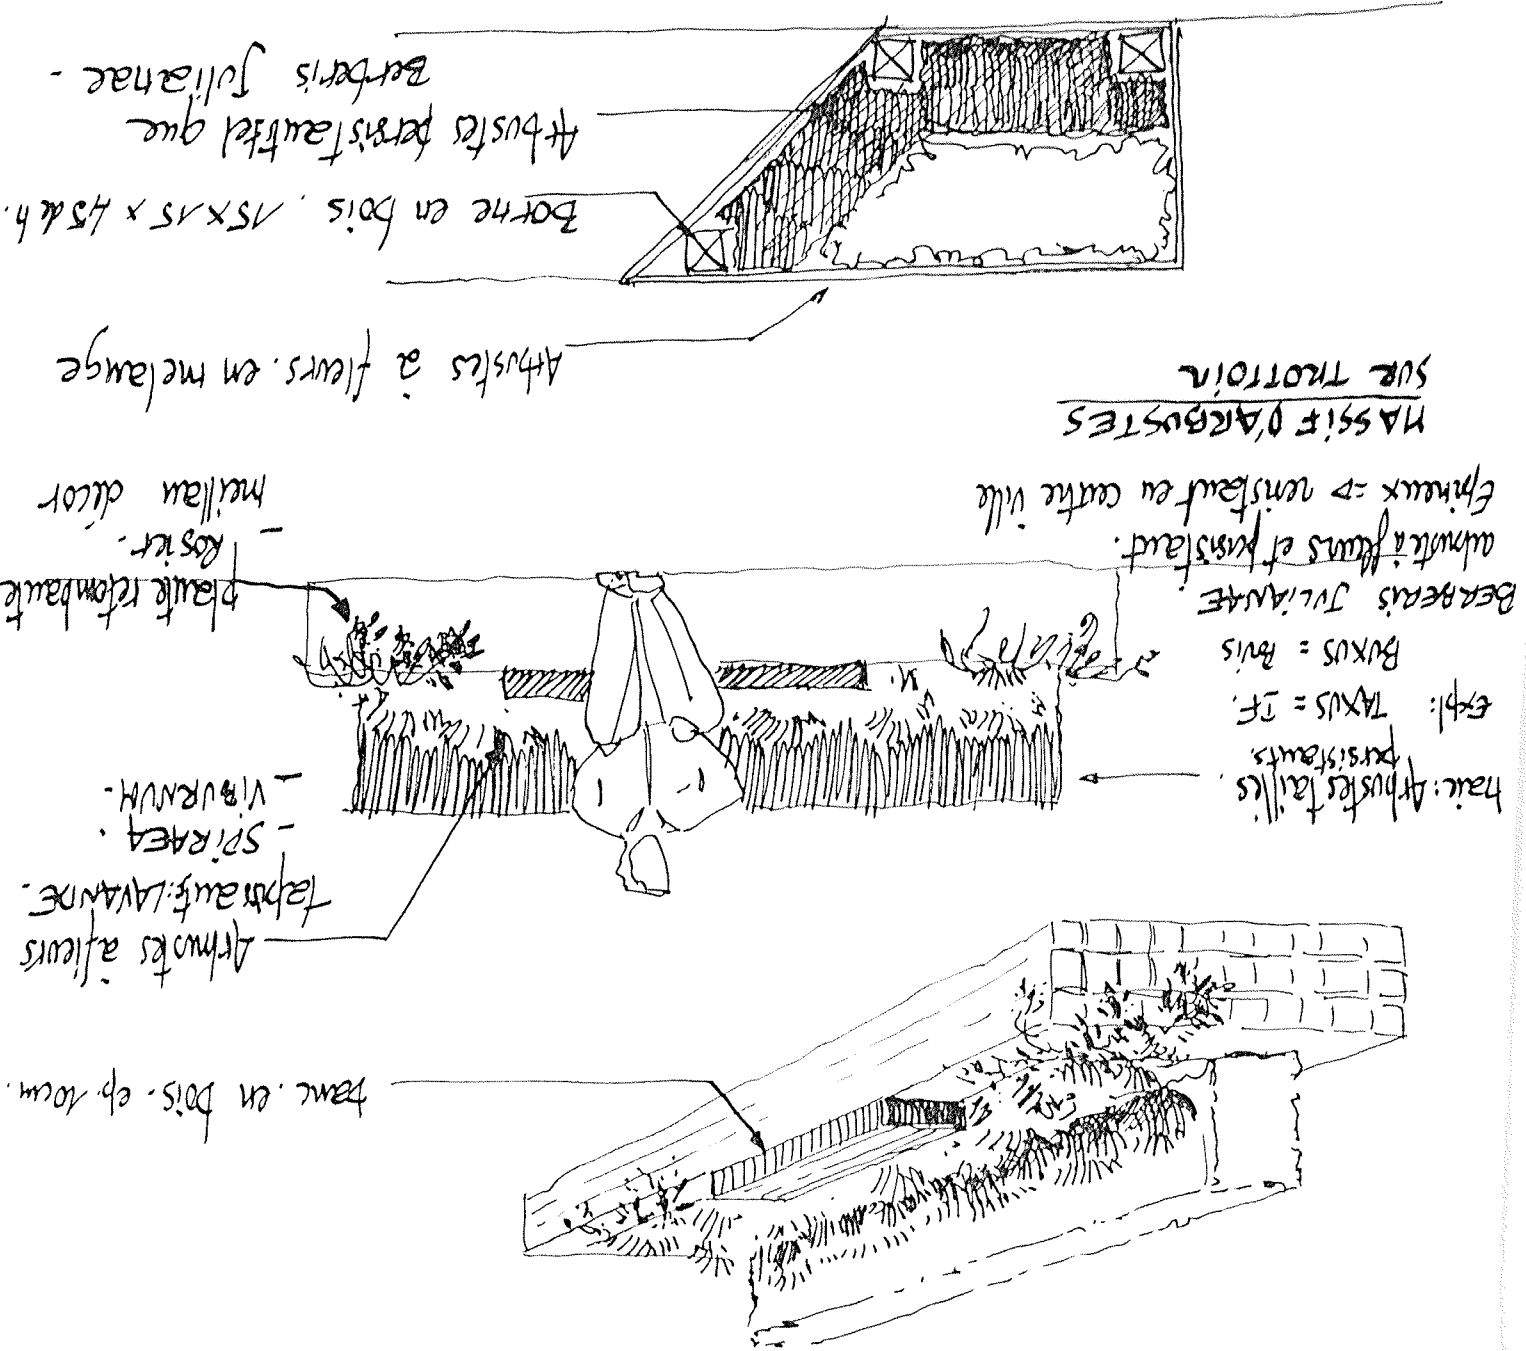 banc. en bois. ep. 10cm.
Arbustes à fleurs
tapissant: LAVANDE.
- SPIRAEA.
- VIBURNUM.
haie: Arbustes taillés
persistants
Expl: TAXUS = IF.
BUXUS = Buis
BERBERIS JULIANAE
arbuste à fleurs et persistant.
Epineux => resistant en centre ville
plante retombante
Rosier.
- meillan décor
MASSIF D'ARBUSTES
SUR TROTTOIR
Arbustes à fleurs. en melange
Borne en bois. 15x15 x 45 de h.
Arbustes persistant tel que
Berberis Julianae -